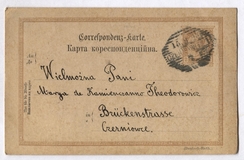 Correspondenz-Karte.
Карта кореспонденційна.
Wielmożna Pani
Marya de Kamienieanno Theodorowicz
Brückenstrasse
Czerniowce.